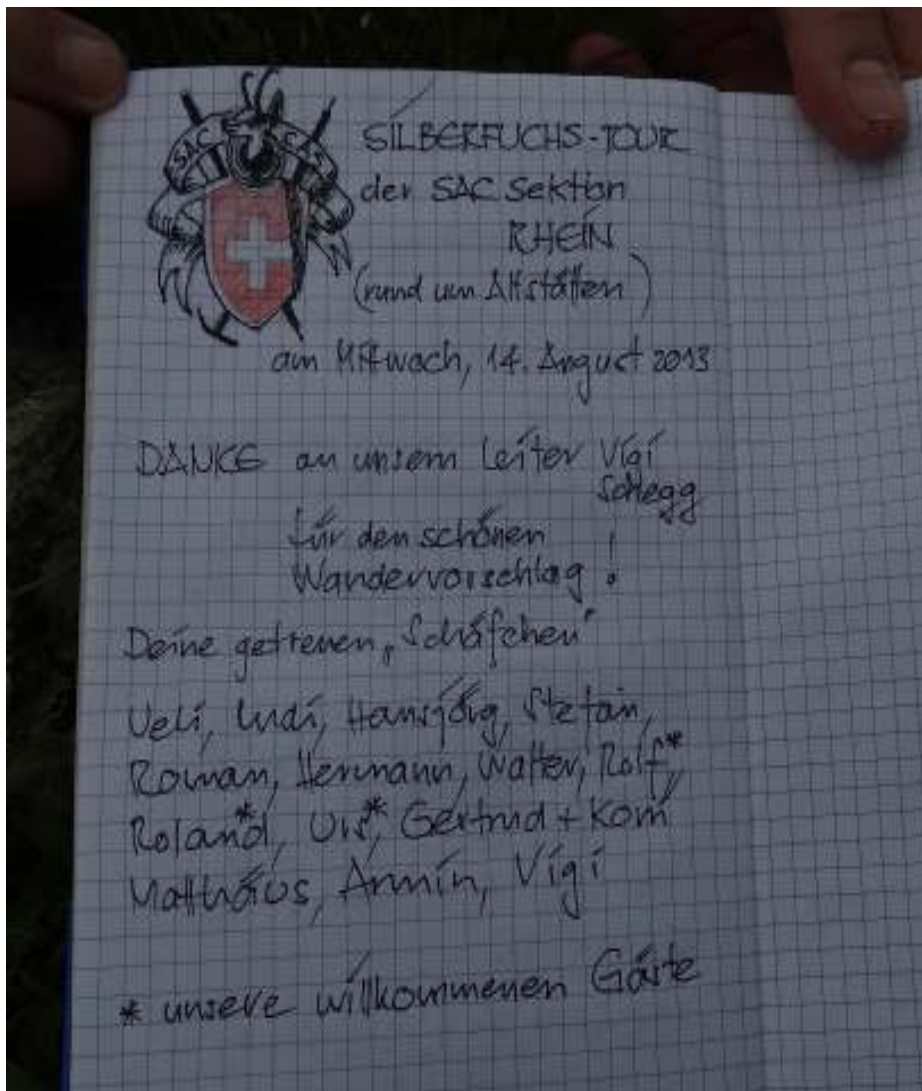 SAC CAS
SILBERFUCHS-TOUR
der SAC Sektion
RHEIN
(rund um Altstätten)
am Mittwoch, 14. August 2013
DANKE an unsern Leiter Vigi
Schegg
für den schönen
Wandervorschlag !
Deine getreuen „Schäfchen"
Ueli, Ludi, Hansjörg, Stefan,
Roman, Hermann, Walter, Rolf*,
Roland*, Urs*, Gertrud + Koni
Matthäus, Armin, Vigi
* unsere willkommenen Gäste